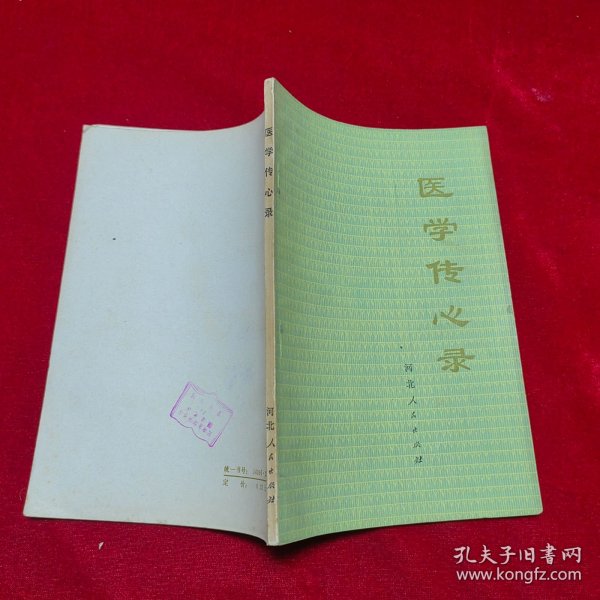 医学传心录
河北人民出版社
医学传心录
河北人民出版社
统一书号：
定价：
孔夫子旧书网
www.kongfz.com